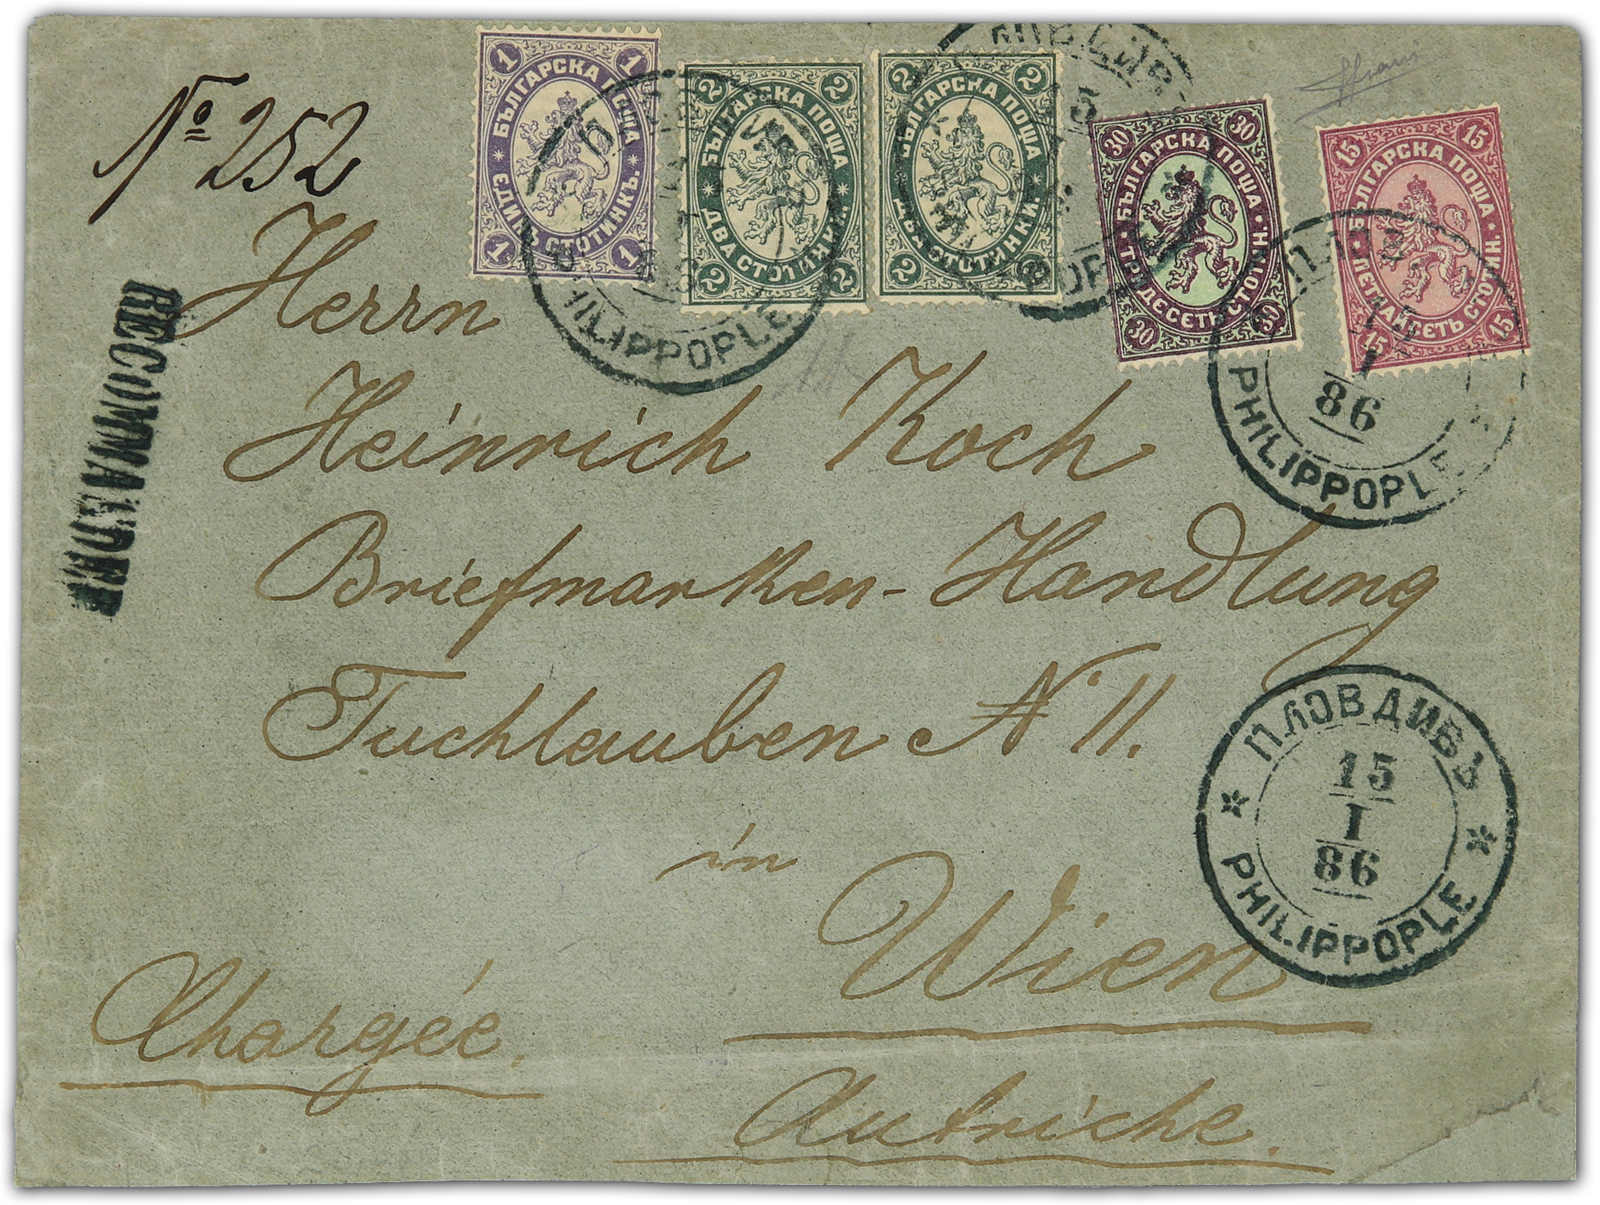 № 252
1 1
БЪЛГАРСКА ПОЩА
ЕДИНЪ СТОТИНКЪ.
1 1
2 2
БЪЛГАРСКА ПОЩА
ДВА СТОТИНКИ.
2 2
2 2
БЪЛГАРСКА ПОЩА
СТОТИНКИ.
2 2
30 30
БЪЛГАРСКА ПОЩА
ТРИДЕСЕТЬ СТОТИНК.
30 30
15 15
БЪЛГАРСКА ПОЩА
ПЕТНАЙСЕТЬ СТОТИНК.
15 15
PHILIPPOPLE
I
86
PHILIPPOPLE
RECOMMANDEE
Herrn
Heinrich Koch
Briefmarken-Handlung
Tuchlauben № 11.
in
Wien
Chargée.
Autriche.
ПЛОВДИВЪ
15
I
86
PHILIPPOPLE